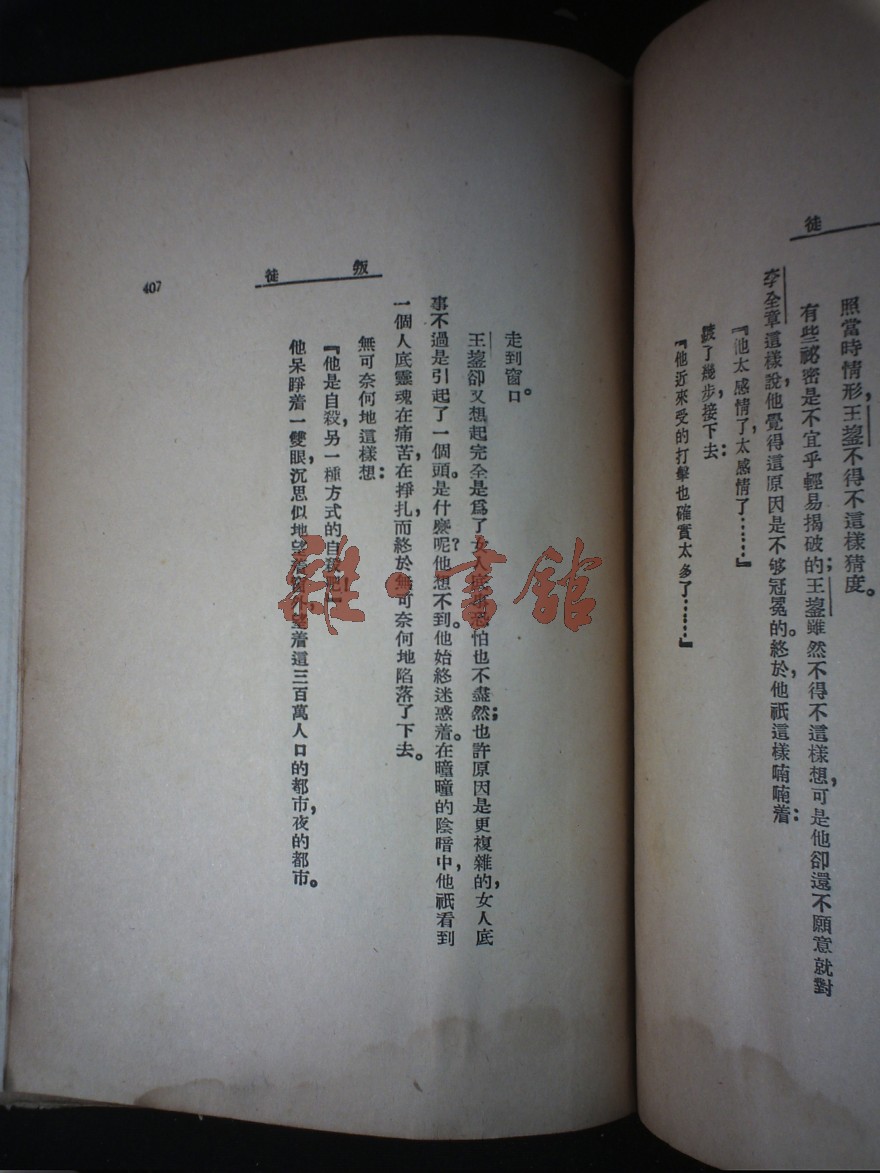 徒
照當時情形，王鋆不得不這樣猜度。
有些祕密是不宜乎輕易揭破的；王鋆雖然不得不這樣想，可是他卻還不願意就對
李全章這樣說，他覺得這原因是不够冠冕的。終於，他祇這樣喃喃着：
『他太感情了，太感情了……』
踱了幾步，接下去：
『他近來受的打擊也確實太多了……』
叛徒
走到窗口。
王鋆卻又想起完全是爲了女人底事，恐怕也不盡然；也許原因是更複雜的，女人底
事不過是引起了一個頭。是什麽呢？他想不到。他始終迷惑着。在曈曈的陰暗中，他祇看到
一個人底靈魂在痛苦，在掙扎，而終於無可奈何地陷落了下去。
無可奈何地這樣想：
『他是自殺，另一種方式的自殺吧！』
他呆睜着一雙眼，沉思似地望着窗外，望着這三百萬人口的都市，夜的都市。
407
雜·書館